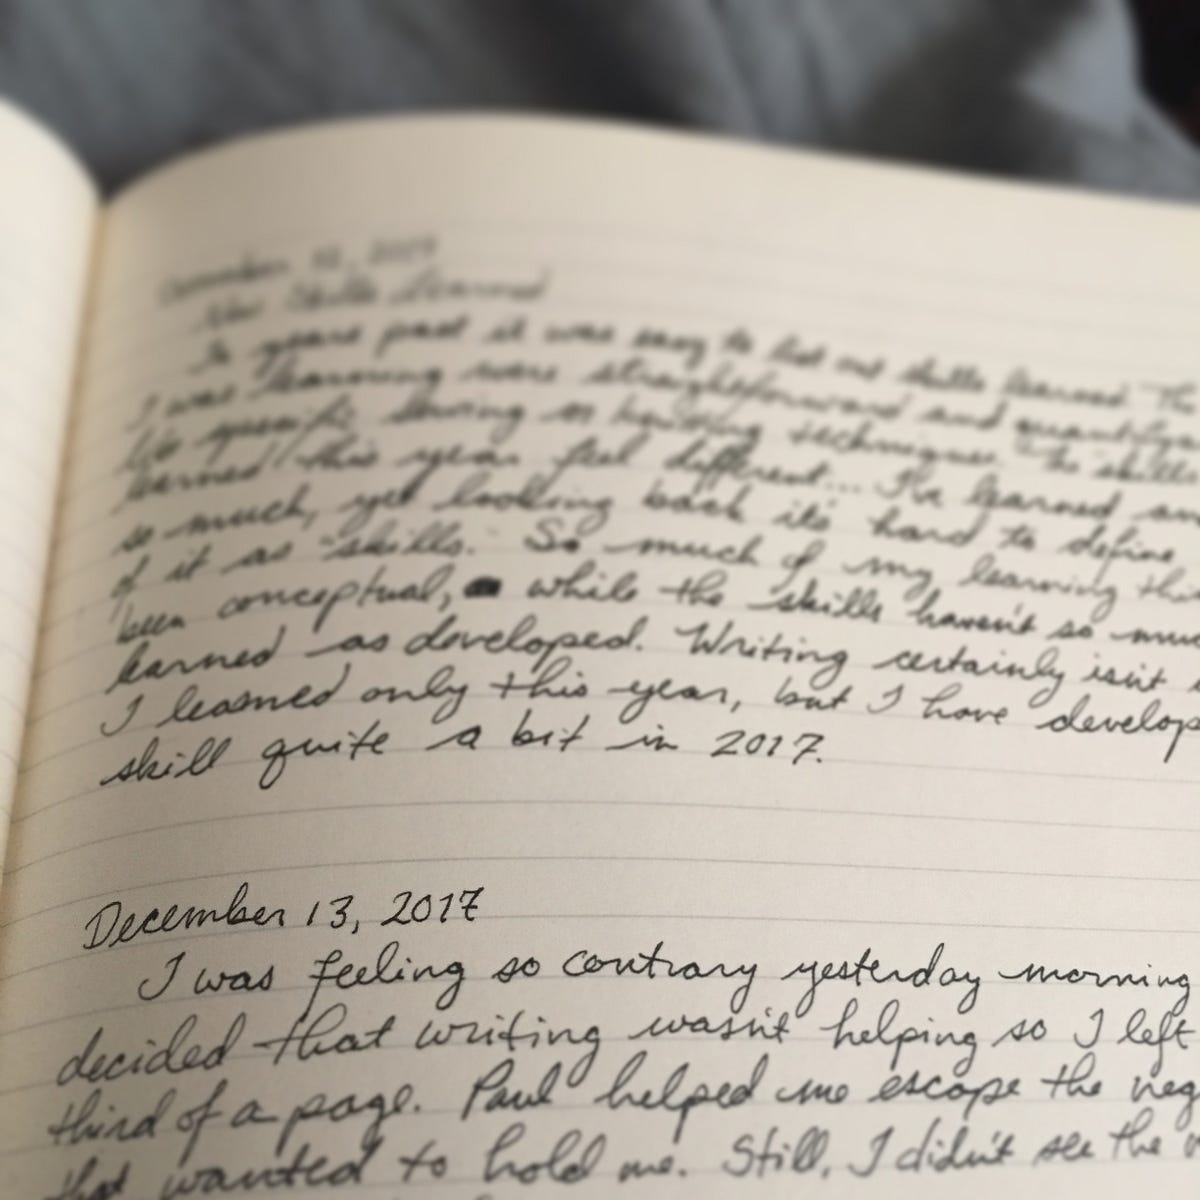 December 12, 2017
New Skills Learned
In years past it was easy to list our skills learned. The
I was learning were straightforward and
like specific techniques. The skills
learned this year feel different... I've learned
so much, yet looking back it's hard to define
of it as "skills." So much of my learning this
been conceptual, while the skills haven't so much
learned as developed. Writing certainly isn't
I learned only this year, but I have develop
skill quite a bit in 2017.
December 13, 2017
I was feeling so contrary yesterday morning
decided that writing wasn't helping so I left
third of a page. Paul helped me escape the neg
that wanted to hold me. Still, I didn't see the